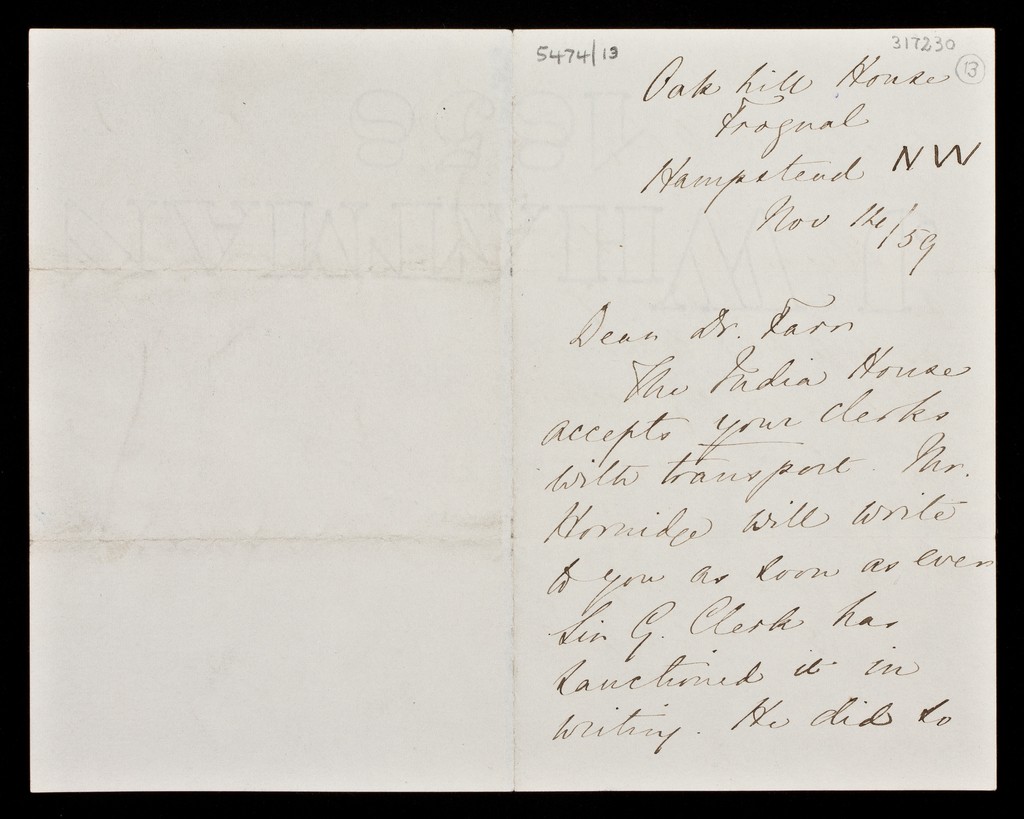 5474/13
317230
13
Oak hill House
Frognal
Hampstead NW
Nov 14/59
Dear Dr. Farr
The India House
accepts your clerks
with transport. Mr.
Hornidge will write
to you as soon as ever
Sir G. Clerk has
sanctioned it in
writing. He did so